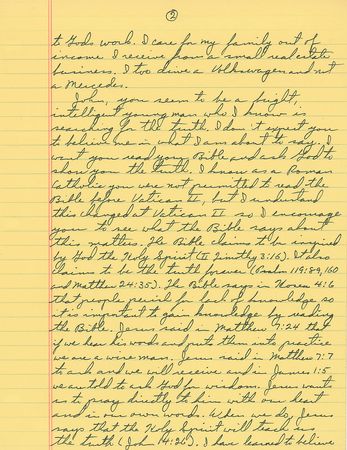 ②
to Gods work. I care for my family out of
income I receive from a small real estate
business. I too drive a Volkswagen and not
a Mercedes.
John, you seem to be a bright,
intelligent young man who I know is
searching for the truth. I don't expect you
to believe me in what I am about to say. I
want you read your Bible and ask God to
show you the truth. I know as a Roman
Catholic you were not permitted to read the
Bible before Vatican II, but I understand
this changed at Vatican II so I encourage
you to see what the Bible says about
this matter. The Bible claims to be inspired
by God the Holy Spirit (II Timothy 3:16). It also
claims to be the truth forever (Psalm 119:89,160
and Matthew 24:35). The Bible says in Hosea 4:6
that people perish for lack of knowledge so
it's important to gain knowledge by reading
the Bible. Jesus said in Matthew 7:24 that
if we hear his words and puts them into practice
we are a wise man. Jesus said in Matthew 7:7
to ask and we will receive and in James 1:5
we are told to ask God for wisdom. Jesus wants
us to pray directly to him with our heart
and in our own words. When we do, Jesus
says that the Holy Spirit will teach us
the truth (John 14:26). I have learned to believe